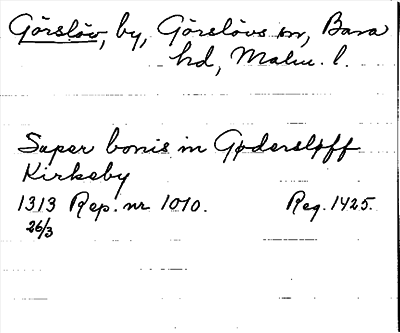 Görslöv, by, Görslövs sn, Bara
hd, Malm. l.
Super bonis in Gødersløff
Kirkeby
1313 Rep. nr 1010. Reg. 1425.
26/3